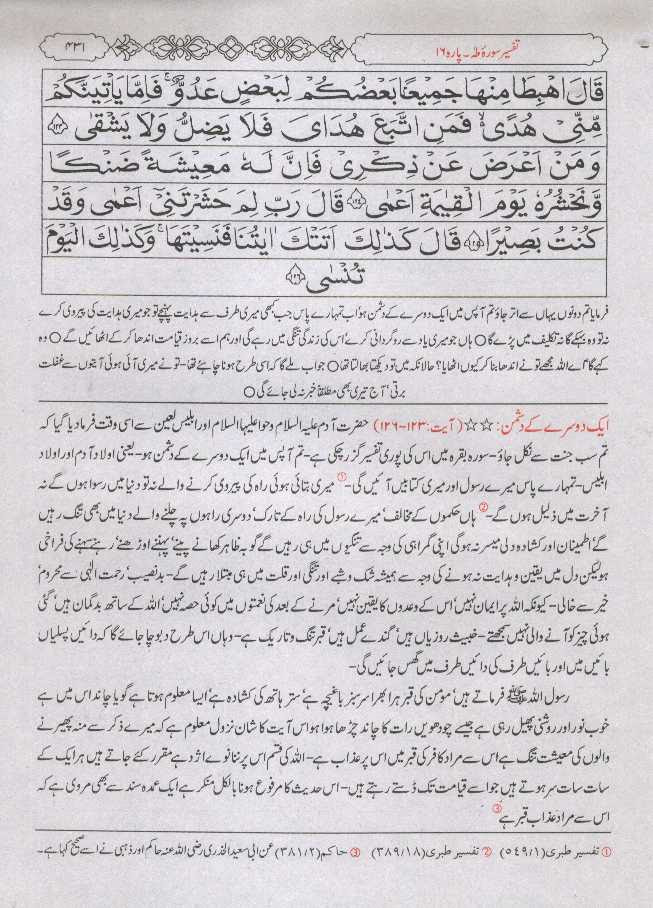 تفسیر سورۂ طٰہٰ۔ پارہ ۱۶
۴۳۱
قَالَ اهْبِطَا مِنْهَا جَمِيْعًا بَعْضُكُمْ لِبَعْضٍ عَدُوٌّ ۚ فَاِمَّا يَاْتِيَنَّكُمْ
مِّنِّيْ هُدًى ۙ فَمَنِ اتَّبَعَ هُدَايَ فَلَا يَضِلُّ وَلَا يَشْقٰى ۝۱۲۳
وَمَنْ اَعْرَضَ عَنْ ذِكْرِيْ فَاِنَّ لَهٗ مَعِيْشَةً ضَنْكًا
وَّنَحْشُرُهٗ يَوْمَ الْقِيٰمَةِ اَعْمٰى ۝۱۲۴ قَالَ رَبِّ لِمَ حَشَرْتَنِيْٓ اَعْمٰى وَقَدْ
كُنْتُ بَصِيْرًا ۝۱۲۵ قَالَ كَذٰلِكَ اَتَتْكَ اٰيٰتُنَا فَنَسِيْتَهَا ۚ وَكَذٰلِكَ الْيَوْمَ
تُنْسٰى ۝۱۲۶
فرمایا تم دونوں یہاں سے اتر جاؤ تم آپس میں ایک دوسرے کے دشمن ہو اب تمہارے پاس جب کبھی میری طرف سے ہدایت پہنچے تو جو میری ہدایت کی پیروی کرے
نہ تو وہ بہکے گا نہ تکلیف میں پڑے گا ○ ہاں جو میری یاد سے روگردانی کرے اس کی زندگی تنگی میں رہے گی اور ہم اسے بروز قیامت اندھا کر کے اٹھائیں گے ○ وہ
کہے گا' اے اللہ مجھے تو نے اندھا بنا کر کیوں اٹھایا؟ حالانکہ میں تو دیکھتا بھالتا تھا ○ جواب ملے گا کہ اسی طرح ہونا چاہئے تھا - تو نے میری آئی ہوئی آیتوں سے غفلت
برتی' آج تیری بھی مطلقاً خبر نہ لی جائے گی ○
ایک دوسرے کے دشمن: ☆☆ (آیت: ۱۲۳-۱۲۶) حضرت آدم علیہ السلام و حوا علیہا السلام اور ابلیس لعین سے اسی وقت فرما دیا گیا کہ
تم سب جنت سے نکل جاؤ - سورہ بقرہ میں اس کی پوری تفسیر گزر چکی ہے - تم آپس میں ایک دوسرے کے دشمن ہو - یعنی اولاد آدم اور اولاد
ابلیس - تمہارے پاس میرے رسول اور میری کتابیں آئیں گی - ① میری بتائی ہوئی راہ کی پیروی کرنے والے نہ تو دنیا میں رسوا ہوں گے نہ
آخرت میں ذلیل ہوں گے - ② ہاں حکموں کے مخالف' میرے رسول کی راہ کے تارک' دوسری راہوں پہ چلنے والے دنیا میں بھی تنگ رہیں
گے' اطمینان اور کشادہ دلی میسر نہ ہوگی اپنی گمراہی کی وجہ سے تنگیوں میں ہی رہیں گے گو بہ ظاہر کھانے پینے' پہننے اوڑھنے' رہنے سہنے کی فراخی
ہو لیکن دل میں یقین و ہدایت نہ ہونے کی وجہ سے ہمیشہ شک و شبے اور تنگی اور قلت میں ہی مبتلا رہیں گے - بدنصیب' رحمت الٰہی سے محروم'
خیر سے خالی - کیونکہ اللہ پر ایمان نہیں' اس کے وعدوں کا یقین نہیں' مرنے کے بعد کی نعمتوں میں کوئی حصہ نہیں' اللہ کے ساتھ بدگمان ہیں' گئی
ہوئی چیز کو آنے والی نہیں سمجھتے - خبیث روزیاں ہیں' گندے عمل ہیں' قبر تنگ و تاریک ہے - وہاں اس طرح دبوچا جائے گا کہ دائیں پسلیاں
بائیں میں اور بائیں طرف کی دائیں طرف میں گھس جائیں گی -
رسول اللہ ﷺ فرماتے ہیں' مومن کی قبر ہرا بھرا سرسبز باغیچہ ہے' ستر ہاتھ کی کشادہ ہے' ایسا معلوم ہوتا ہے گویا چاند اس میں ہے
خوب نور اور روشنی پھیل رہی ہے جیسے چودھویں رات کا چاند چڑھا ہوا ہو اس آیت کا شان نزول معلوم ہے کہ میرے ذکر سے منہ پھیرنے
والوں کی معیشت تنگ ہے اس سے مراد کافر کی قبر میں اس پر عذاب ہے - اللہ کی قسم اس پر ننانوے اژدہے مقرر کئے جاتے ہیں ہر ایک کے
سات سات سر ہوتے ہیں جو اسے قیامت تک ڈستے رہتے ہیں - اس حدیث کا مرفوع ہونا بالکل منکر ہے ایک عمدہ سند سے بھی مروی ہے کہ
اس سے مراد عذاب قبر ہے ③
① تفسیر طبری (۵۴۹/۱) ② تفسیر طبری (۳۸۹/۱۸) ③ حاکم (۳۸۱/۲) عن ابی سعید الخدری رضی اللہ عنہ حاکم اور ذہبی نے اسے صحیح کہا ہے۔